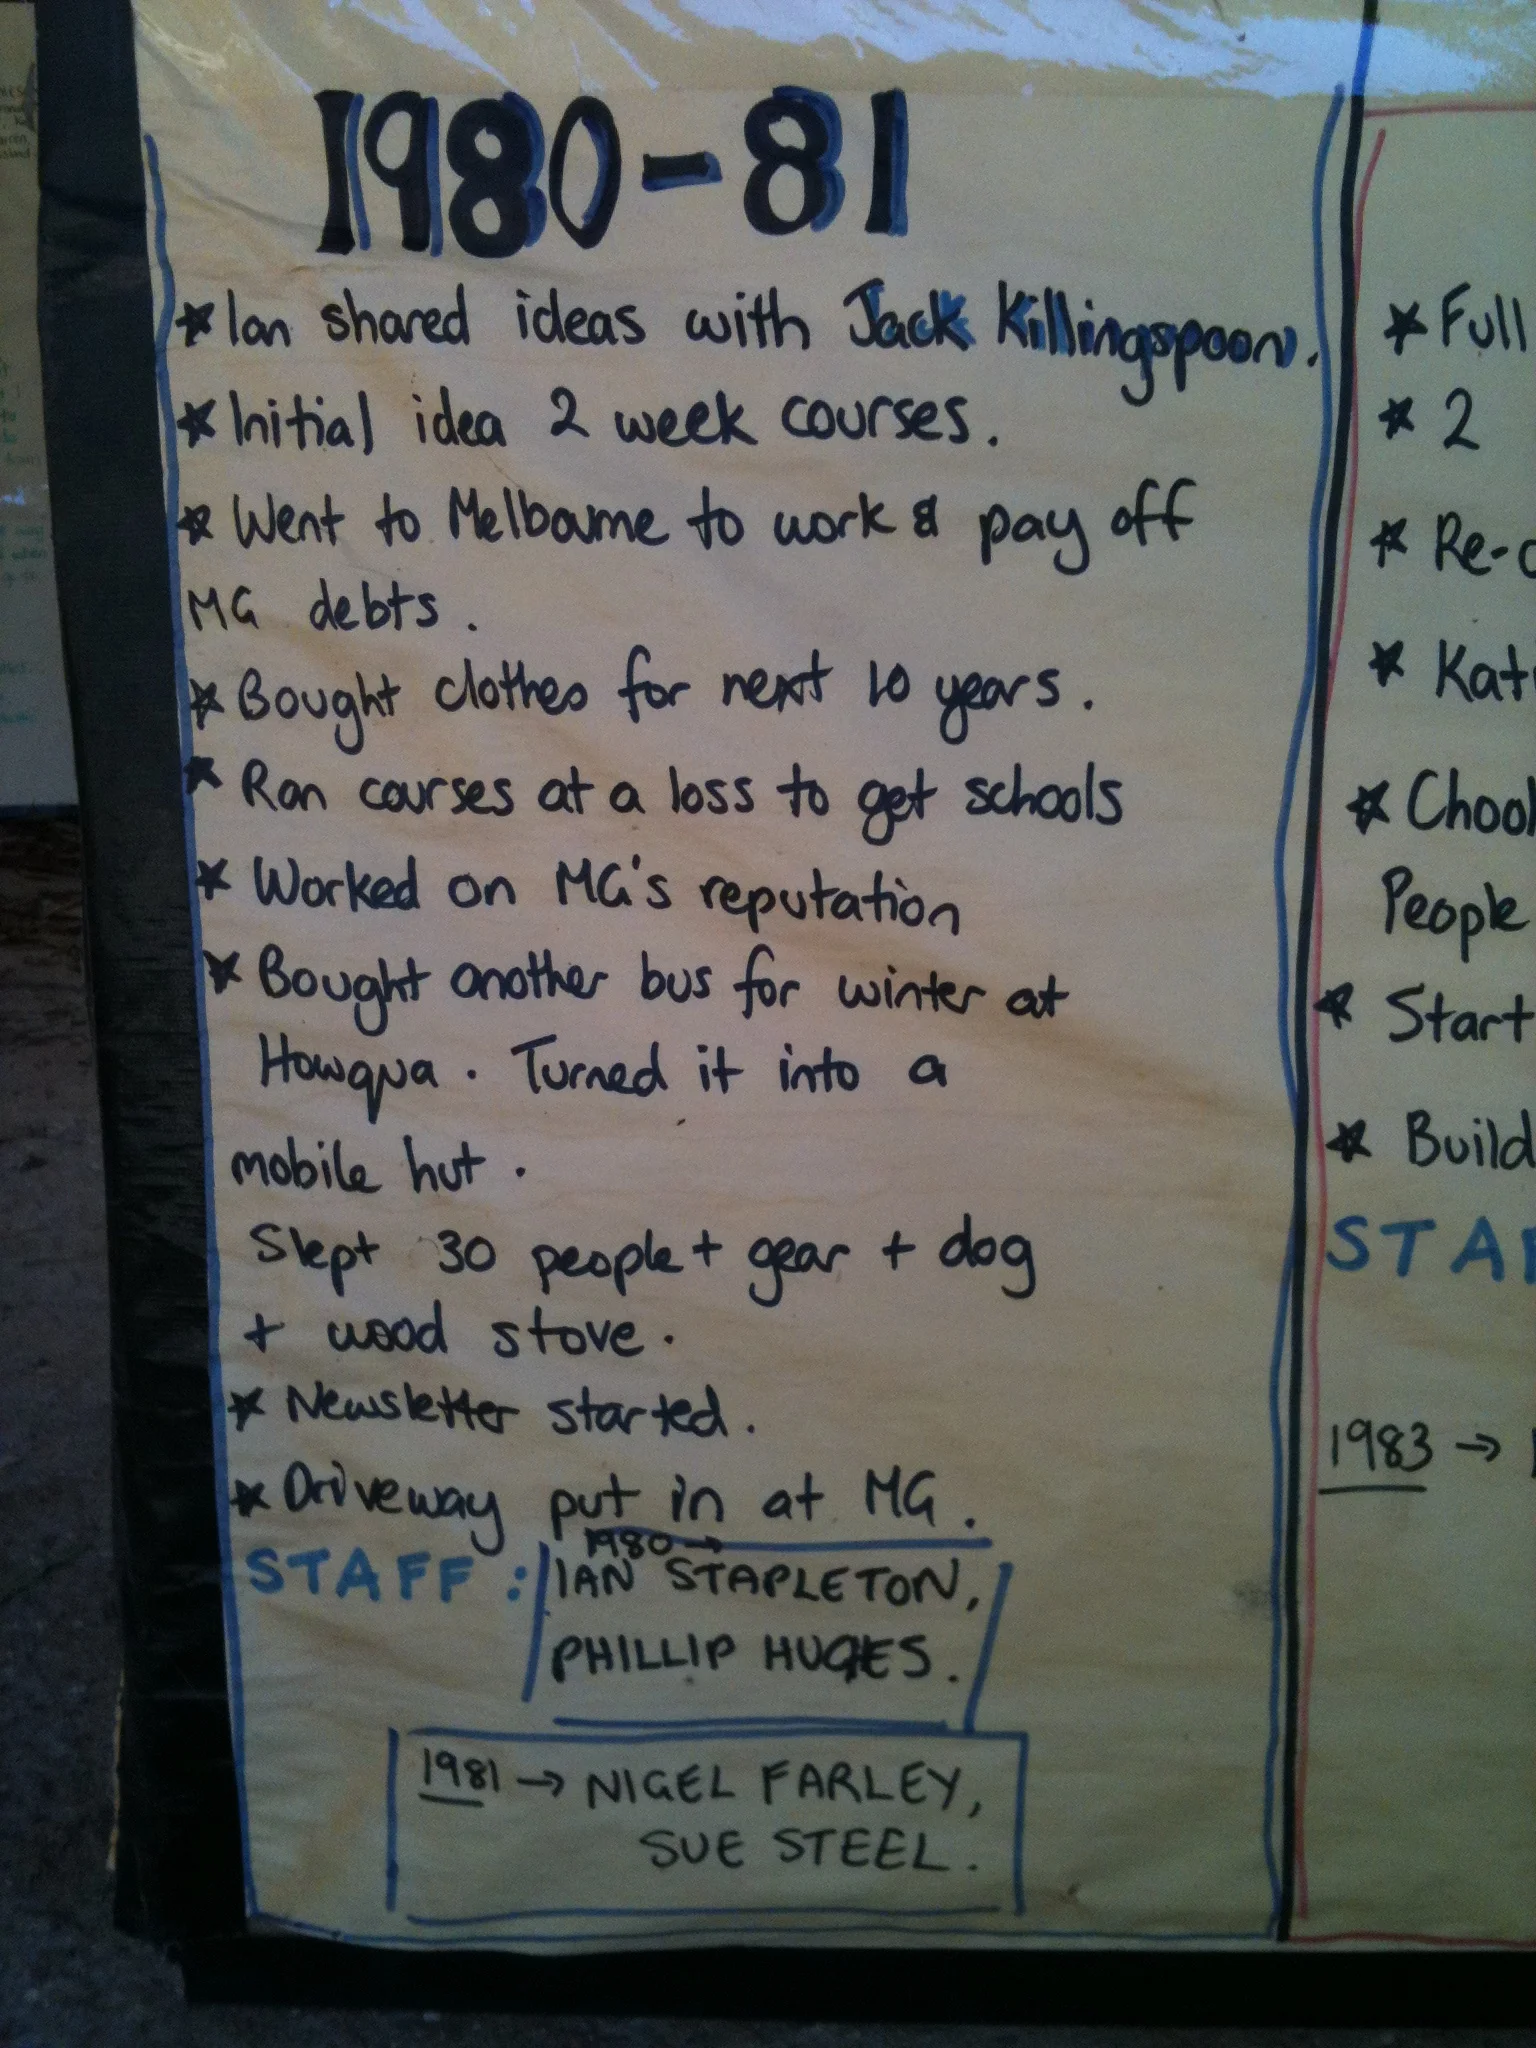 1980-81
* Ian shared ideas with Jack Killingspoon.
* Initial idea 2 week courses.
* Went to Melbourne to work & pay off
MG debts.
* Bought clothes for next 10 years.
* Ran courses at a loss to get schools
* Worked on MG's reputation
* Bought another bus for winter at
Howqua. Turned it into a
mobile hut.
Slept 30 people + gear + dog
+ wood stove.
* Newsletter started.
* Driveway put in at MG.
1980 →
STAFF: IAN STAPLETON,
PHILLIP HUGHES.
1981 → NIGEL FARLEY,
SUE STEEL.
* Full
* 2
* Re-
* Kat
* Chool
People
* Start
* Build
STA
1983 →